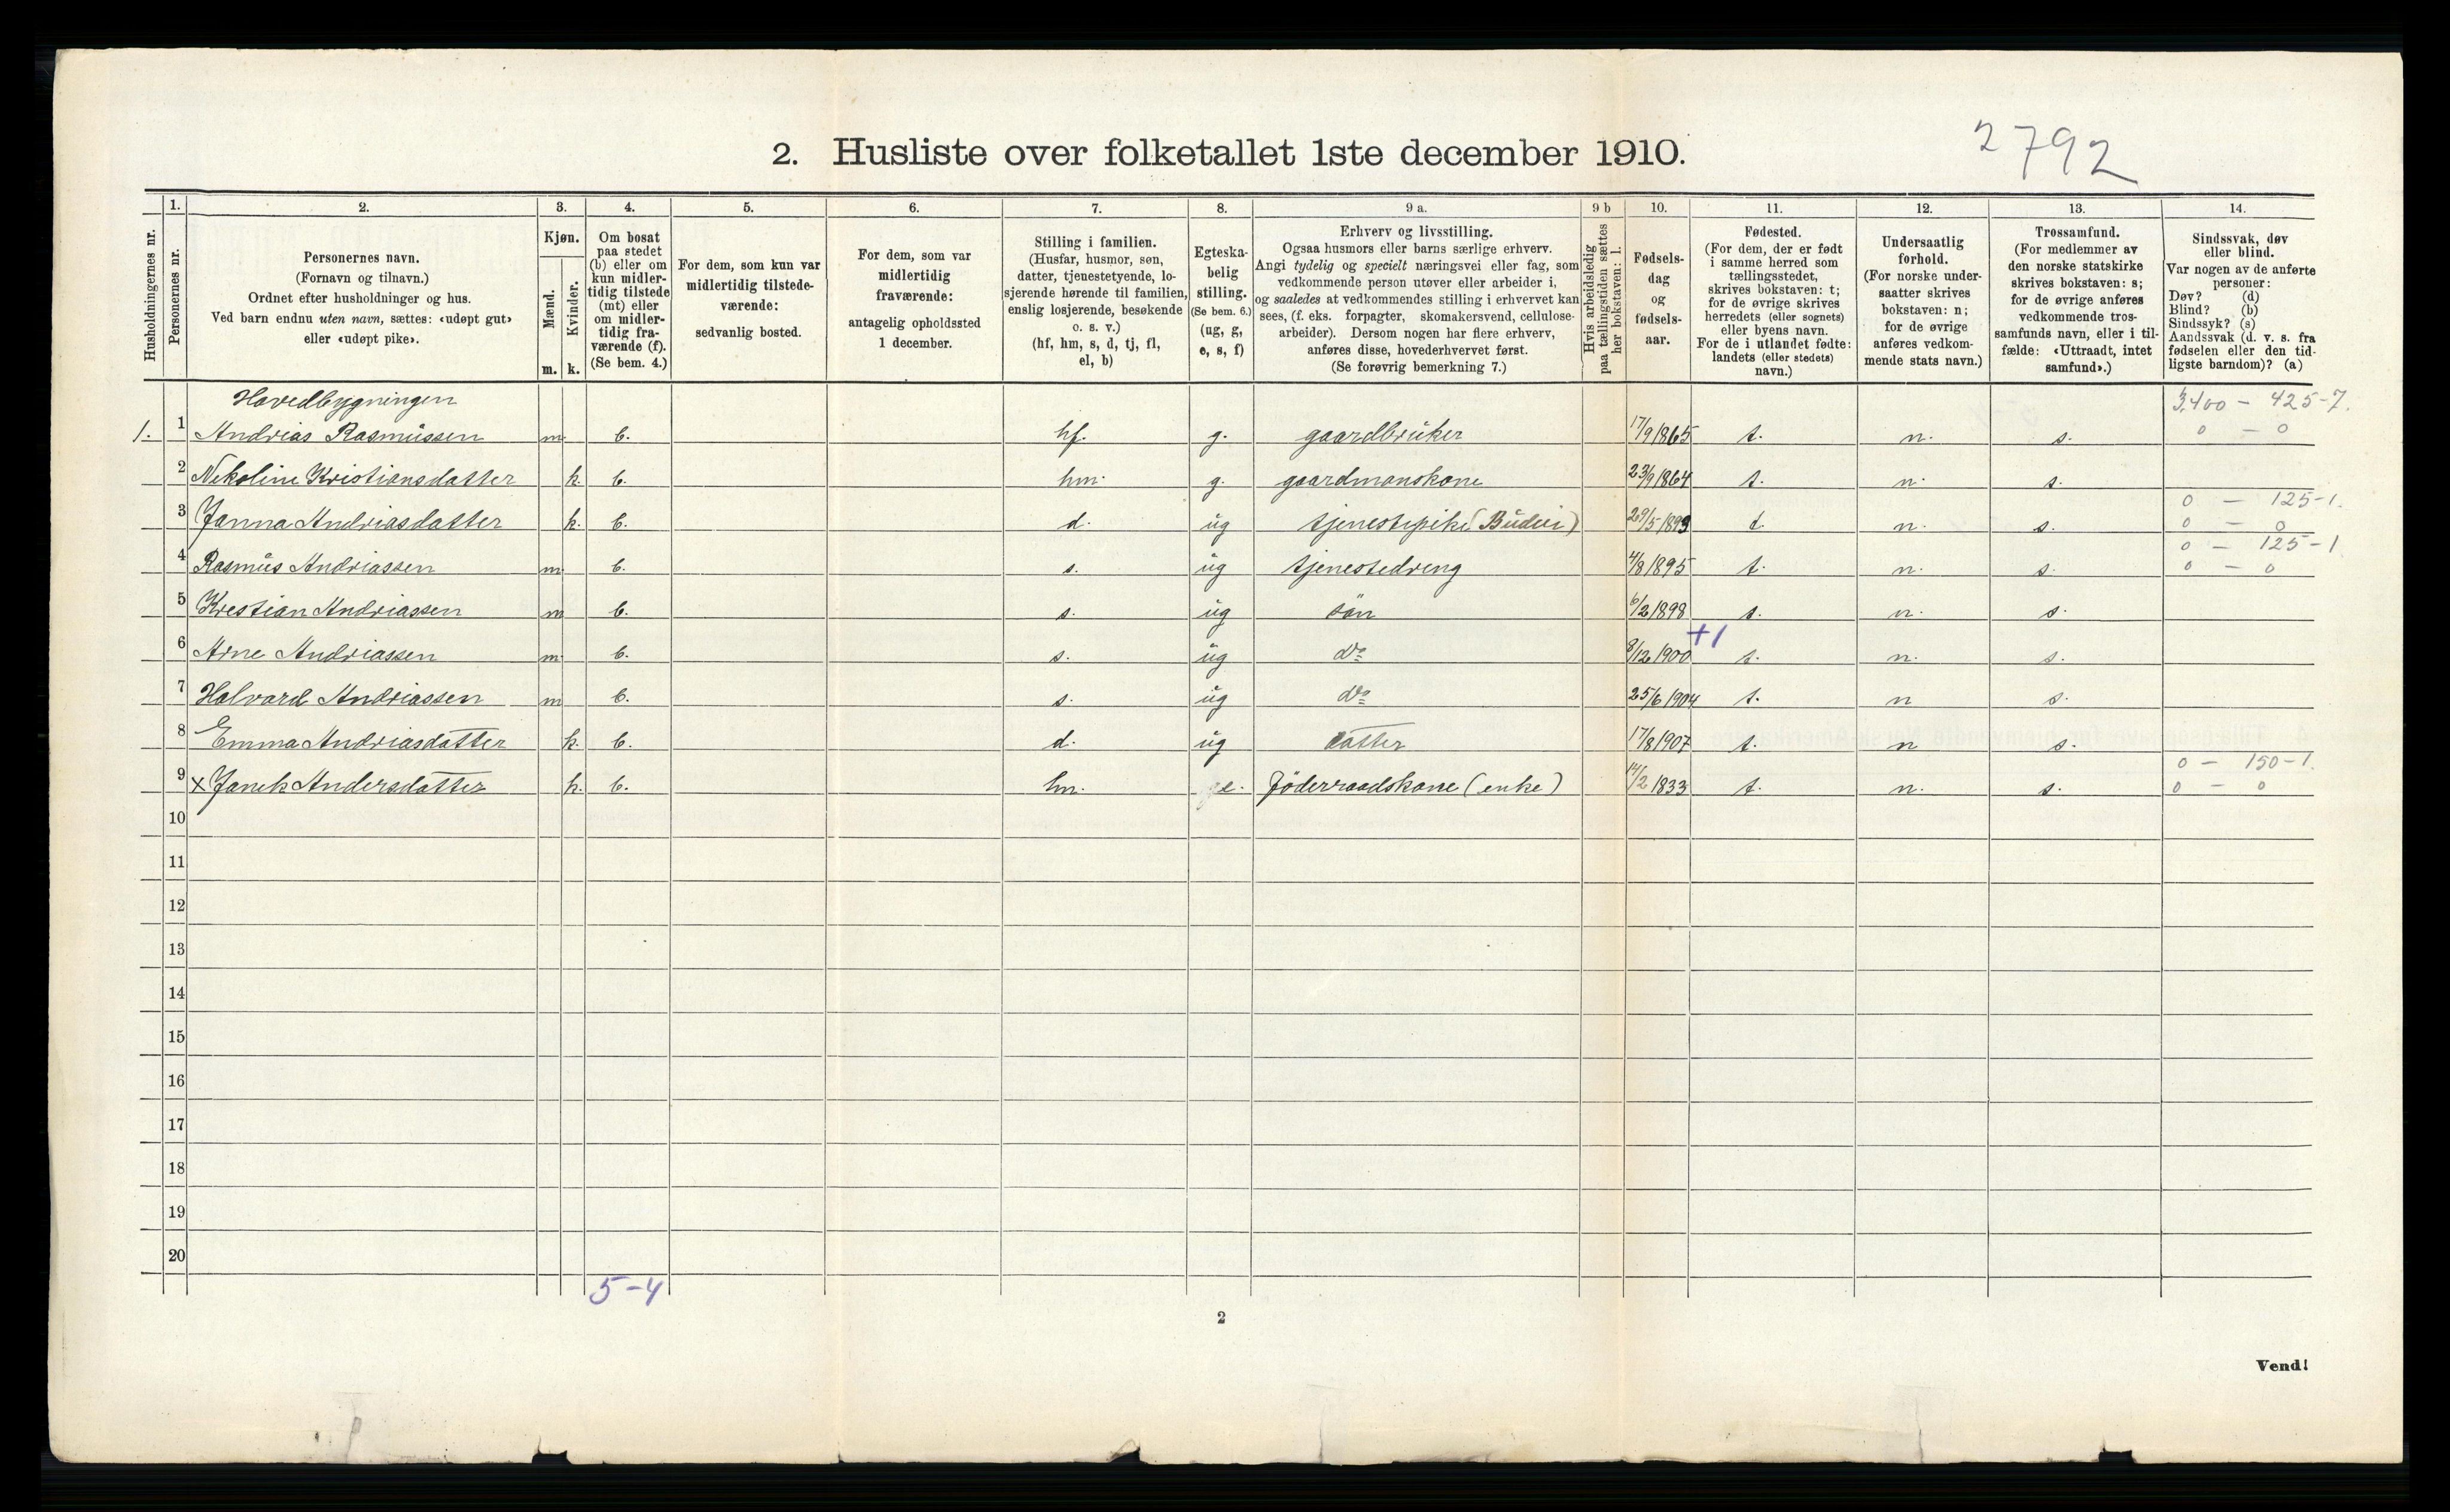 2. Husliste over folketallet 1ste december 1910.
2792
Husholdningernes nr.
1.
Personernes nr.
2.
Personernes navn.
(Fornavn og tilnavn.)
Ordnet efter husholdninger og hus.
Ved barn endnu uten navn, sættes: «udøpt gut»
eller «udøpt pike».
3.
Kjøn.
Mænd.
Kvinder.
m. k.
4.
Om bosat
paa stedet
(b) eller om
kun midler-
tidig tilstede
(mt) eller
om midler-
tidig fra-
værende (f).
(Se bem. 4.)
5.
For dem, som kun var
midlertidig tilstede-
værende:
sedvanlig bosted.
6.
For dem, som var
midlertidig
fraværende:
antagelig opholdssted
1 december.
7.
Stilling i familien.
(Husfar, husmor, søn,
datter, tjenestetyende, lo-
sjerende hørende til familien,
enslig losjerende, besøkende
o. s. v.)
(hf, hm, s, d, tj, fl,
el, b)
8.
Egteska-
belig
stilling.
(Se bem. 6.)
(ug, g,
e, s, f)
9 a.
Erhverv og livsstilling.
Ogsaa husmors eller barns særlige erhverv.
Angi tydelig og specielt næringsvei eller fag, som
vedkommende person utøver eller arbeider i,
og saaledes at vedkommendes stilling i erhvervet kan
sees, (f. eks. forpagter, skomakersvend, cellulose-
arbeider). Dersom nogen har flere erhverv,
anføres disse, hovederhvervet først.
(Se forøvrig bemerkning 7.)
9 b
Hvis arbeidsledig
paa tællingstiden sættes
her bokstaven: l.
10.
Fødsels-
dag
og
fødsels-
aar.
11.
Fødested.
(For dem, der er født
i samme herred som
tællingsstedet,
skrives bokstaven: t;
for de øvrige skrives
herredets (eller sognets)
eller byens navn.
For de i utlandet fødte:
landets (eller stedets)
navn.)
12.
Undersaatlig
forhold.
(For norske under-
saatter skrives
bokstaven: n;
for de øvrige
anføres vedkom-
mende stats navn.)
13.
Trossamfund.
(For medlemmer av
den norske statskirke
skrives bokstaven: s;
for de øvrige anføres
vedkommende tros-
samfunds navn, eller i til-
fælde: «Uttraadt, intet
samfund».)
14.
Sindssvak, døv
eller blind.
Var nogen av de anførte
personer:
Døv? (d)
Blind? (b)
Sindssyk? (s)
Aandssvak (d. v. s. fra
fødselen eller den tid-
ligste barndom)? (a)
Hovedbygningen 3,400 — 425-7.
1. 1 Andrias Rasmussen m b. hf. g. gaardbrüker 17/9 1865 t. n. s. 0 — 0
2 Nekoline Kristiansdatter k. b. hm. g. gaardmanskone 23/9 1864 t. n. s.
0 — 125-1.
3 Janna Andriasdatter k. b. d. ug tjenestepike (Budeie) 29/5 1893 t. n. s. 0 — 0
0 — 125-1
4 Rasmus Andriassen m b. s. ug tjenestedreng 4/8 1895 t. n. s. 0 — 0
5 Krestian Andriassen m b. s. ug sön 6/2 1898 t. n. s.
+1
6 Arne Andriassen m b. s. ug do 8/12 1900 t. n. s.
7 Halvard Andriassen m b. s. ug do 25/6 1904 t. n s.
8 Emma Andriasdatter k. b. d. ug datter 17/8 1907 t. n s.
0 — 150-1.
9 x Janek Andersdatter k. b. hm. e. Föderraadskone (enke) 14/2 1833 t. n. s. 0 — 0
10
11
12
13
14
15
16
17
18
19
20
5-4
2
Vend!